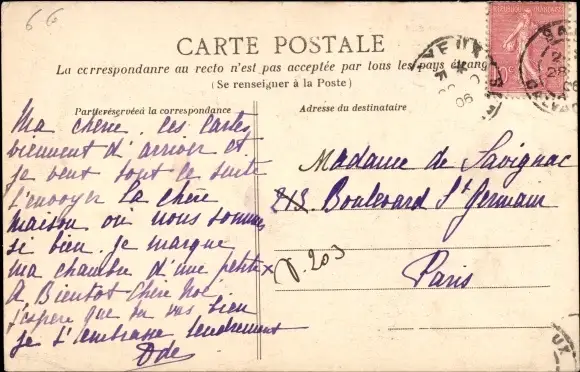 66
CARTE POSTALE
La correspondanre au recto n'est pas acceptée par tous les pays étrang
(Se renseigner à la Poste)
Partie réservée à la correspondance
Adresse du destinataire
Ma chérie, ces cartes
viennent d'arriver et
je veux tout de suite
t'envoyer la chère
maison où nous sommes
si bien. je marque
ma chambre d'une petite x
A Bientot Chère
j'espère que tu vas bien
je t'embrasse tendrement
Ode
Madame de Savignac
213 Boulevard St Germain
203
Paris
06